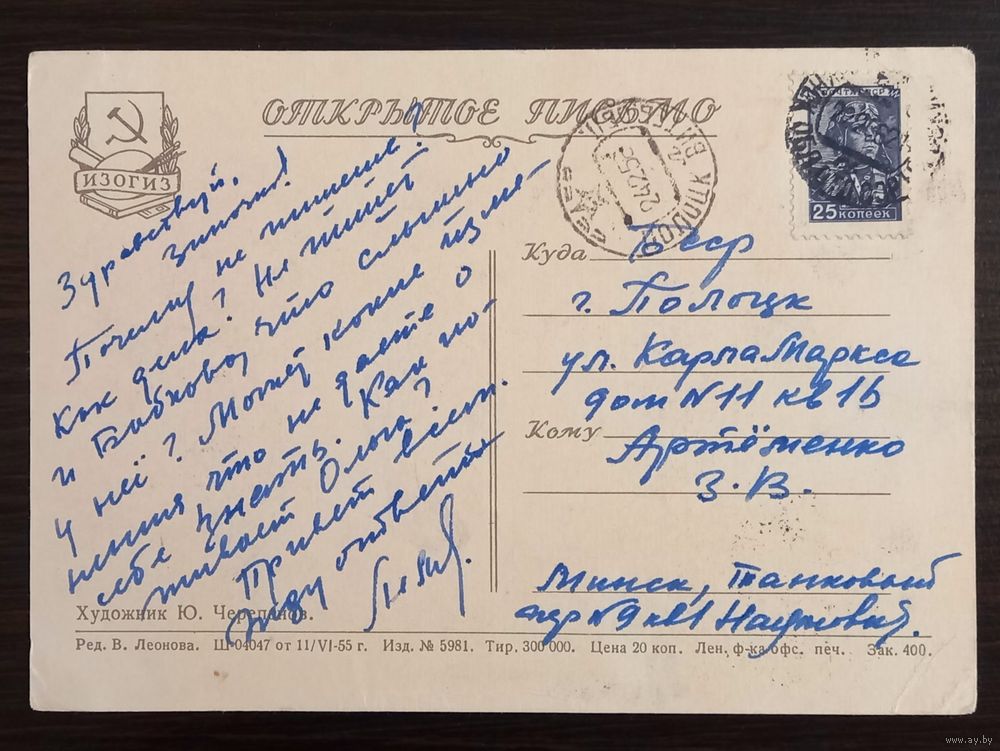 ИЗОГИЗ
ОТКРЫТОЕ ПИСЬМО
ПОЧТА СССР
25 КОПЕЕК
ПОЛОЦК
Здравствуй,
Зиночка!
Почему не пишете?
Как дела? Не пишет
и Бабкова, что слышно
у неё? Может какие изме-
нения что не даёте о
себе знать. Как по-
живает Ольга?
Привет всем.
Жду ответа
Куда Бсср
г. Полоцк
ул. Карла Маркса
дом N 11 кв 1б
Кому Артёменко
З. В.
Минск, Танковый
пер N 9 кв 1 Наумовый.
Художник Ю. Черепанов.
Ред. В. Леонова. Ш-04047 от 11/VI-55 г. Изд. № 5981. Тир. 300 000. Цена 20 коп. Лен. ф-ка офс. печ. Зак. 400.
www.ay.by